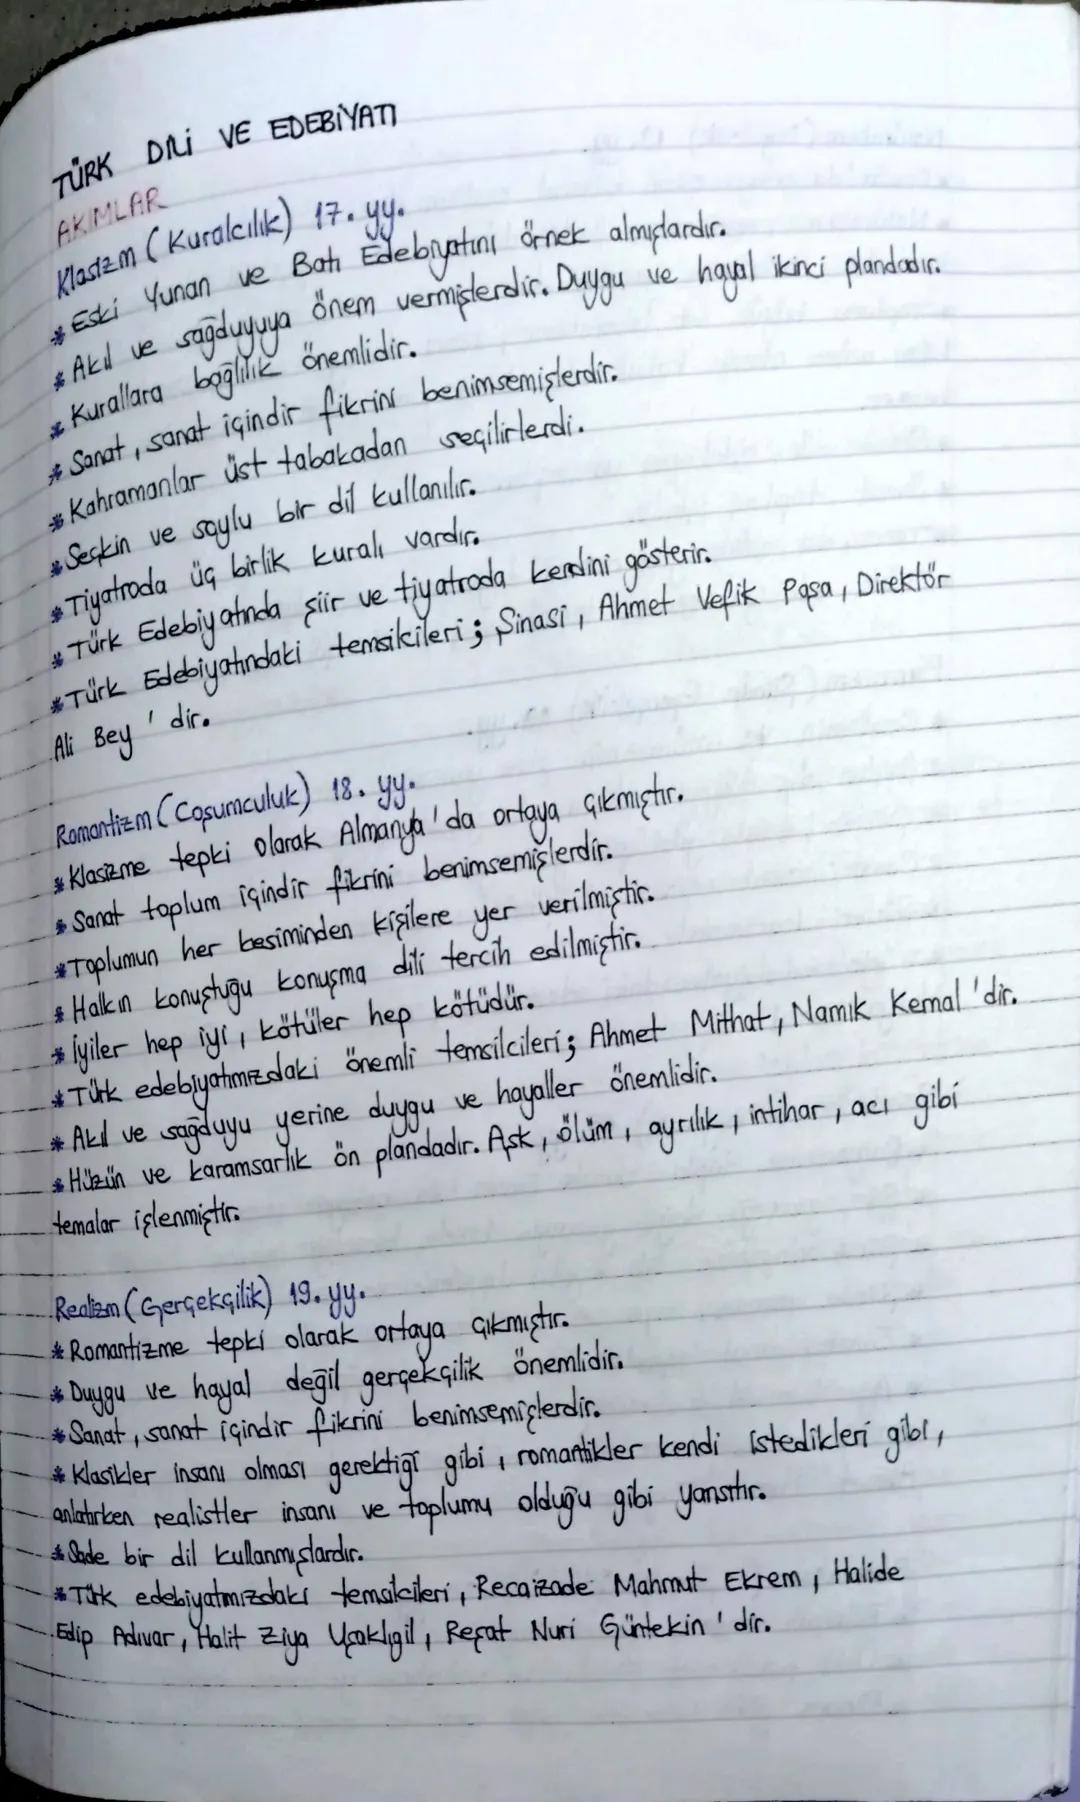 TÜRK DİLİ VE EDEBİYATI
AKIMLAR
Klasizm (Kuralcılık) 17. yy.
* Eski Yunan ve Batı Edebiyatını örnek almışlardır.
* Akıl ve sağduyuya önem vermişlerdir. Duygu ve hayal ikinci plandadır.
* Kurallara bağlılık önemlidir.
* Sanat, sanat içindir fikrini benimsemişlerdir.
* Kahramanlar üst tabakadan seçilirlerdi.
* Seçkin ve soylu bir dil kullanılır.
* Tiyatroda üç birlik kuralı vardır.
* Türk Edebiyatında şiir ve tiyatroda kendini gösterir.
* Türk Edebiyatındaki temsilcileri; Şinasi, Ahmet Vefik Paşa, Direktör
Ali Bey 'dir.
Romantizm (Coşumculuk) 18. yy.
* Klasizme tepki olarak Almanya'da ortaya çıkmıştır.
* Sanat toplum içindir fikrini benimsemişlerdir.
* Toplumun her kesiminden kişilere yer verilmiştir.
* Halkın konuştuğu konuşma dili tercih edilmiştir.
* İyiler hep iyi, kötüler hep kötüdür.
* Türk edebiyatımızdaki önemli temsilcileri; Ahmet Mithat, Namık Kemal 'dir.
* Akıl ve sağduyu yerine duygu ve hayaller önemlidir.
* Hüzün ve karamsarlık ön plandadır. Aşk, ölüm, ayrılık, intihar, acı gibi
temalar işlenmiştir.
Realizm (Gerçekçilik) 19. yy.
* Romantizme tepki olarak ortaya çıkmıştır.
* Duygu ve hayal değil gerçekçilik önemlidir.
* Sanat, sanat içindir fikrini benimsemişlerdir.
* Klasikler insanı olması gerektiği gibi, romantikler kendi istedikleri gibi,
anlatırken realistler insanı ve toplumu olduğu gibi yansıtır.
* Sade bir dil kullanmışlardır.
* Türk edebiyatımızdaki temsilcileri, Recaizade Mahmut Ekrem, Halide
Edip Adıvar, Halit Ziya Uşaklıgil, Reşat Nuri Güntekin 'dir.